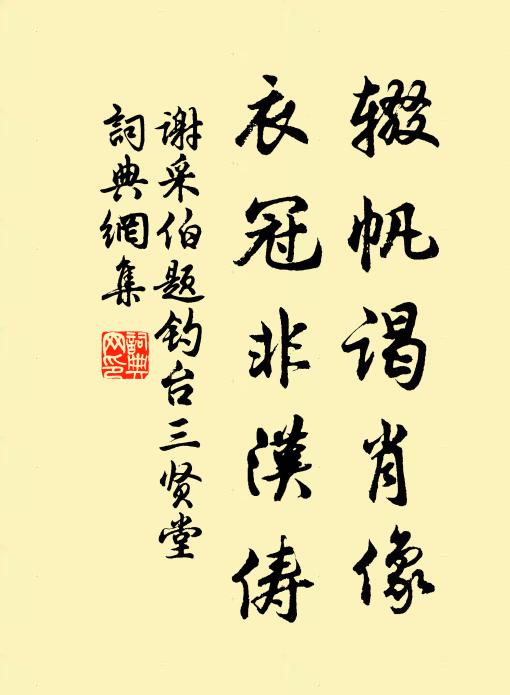 辍帆谒肖像
衣冠非漢俦
谢采伯题钓台三贤堂
詞典網集
詞典网印